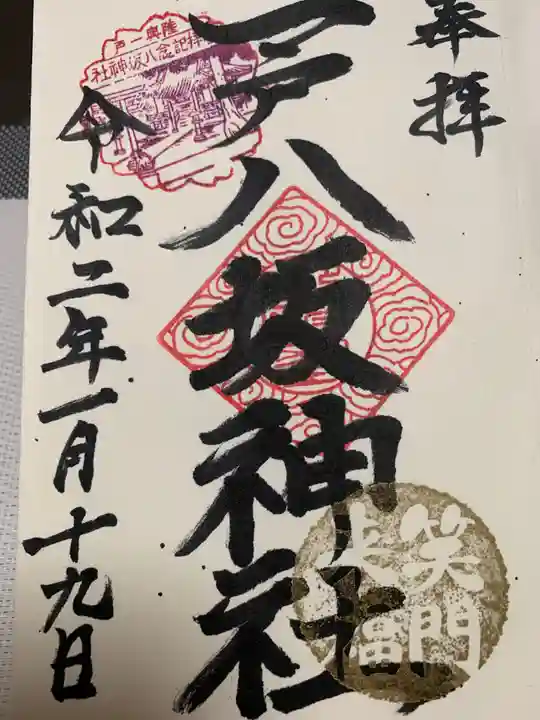 奉拝
一戸八坂神社
令和二年一月十九日
陸奥一戸
参拝記念八坂神社
笑門
来福